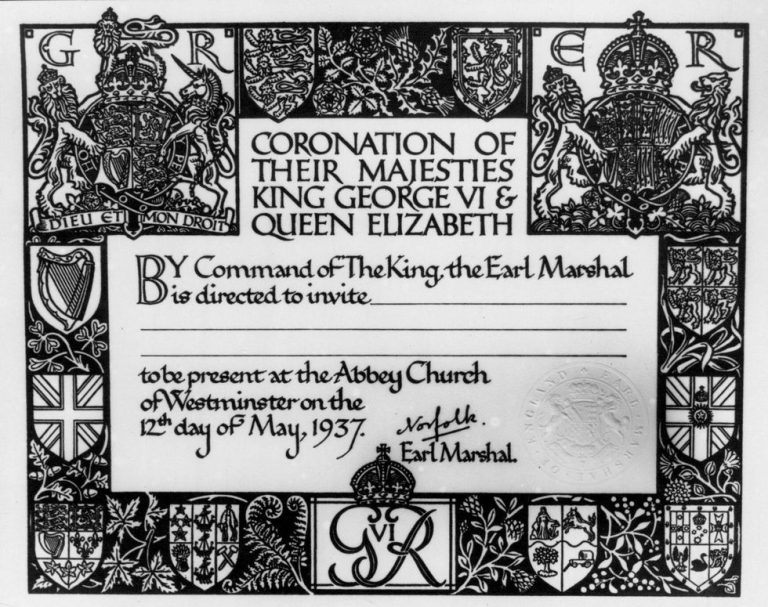 G R
E R
DIEU ET MON DROIT
CORONATION OF
THEIR MAJESTIES
KING GEORGE VI &
QUEEN ELIZABETH
BY Command of The King, the Earl Marshal
is directed to invite
to be present at the Abbey Church
of Westminster on the
12th day of May, 1937.
Norfolk.
Earl Marshal.
EARL MARSHAL OF ENGLAND
G VI R